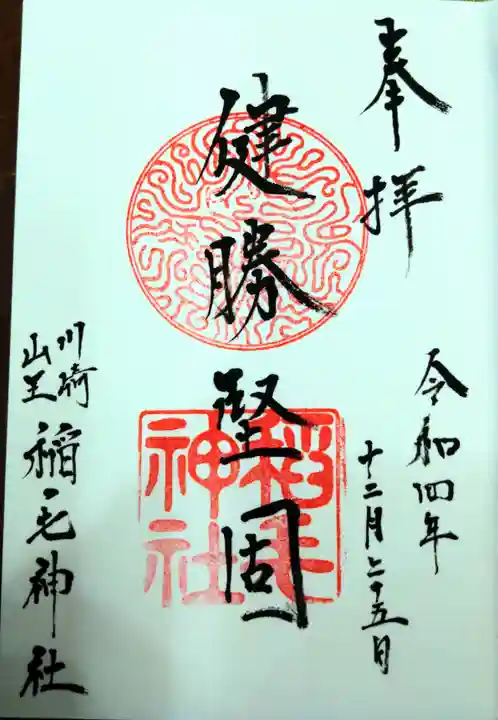 奉拝
令和四年
十二月二十五日
健勝堅固
稲毛
神社
川崎
山王
稲毛神社